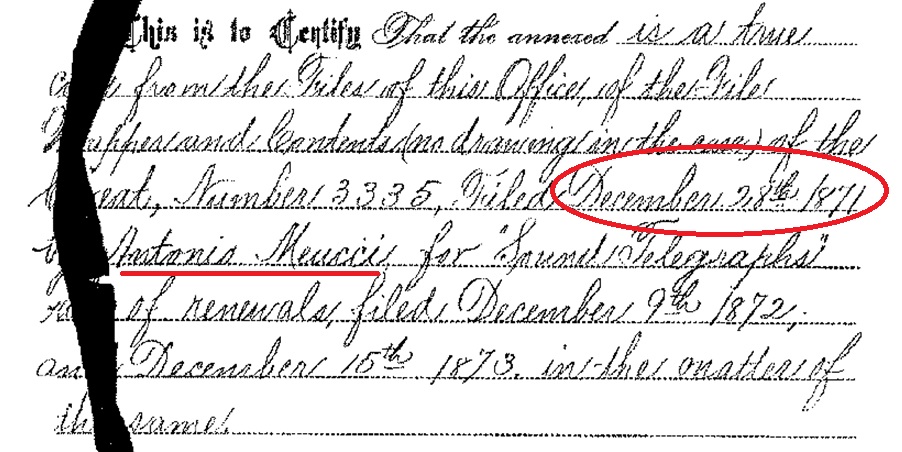 This is to Certify That the annexed is a true
from the Files of this Office, of the File
and Contents (no drawing in the case) of the
Number 3335, Filed December 28th 1871
Antonio Meucci, for "Sound Telegraphs"
of renewals, filed December 9th 1872,
and December 15th 1873. in the matter of
the same.